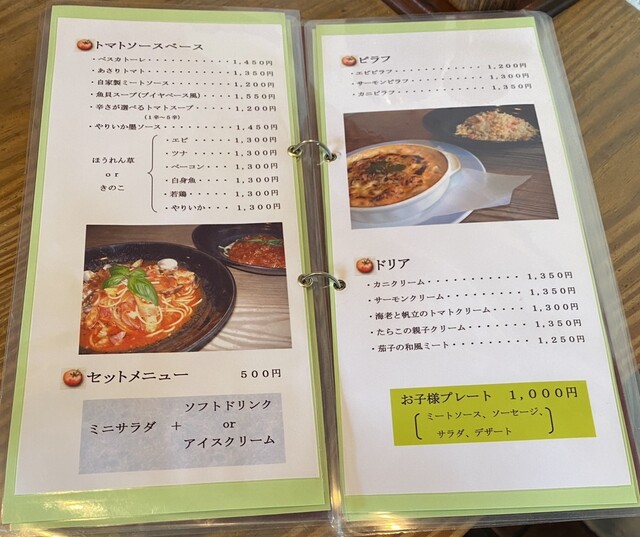 トマトソースベース
・ペスカトーレ・・・・・・・・・・・１,４５０円
・あさりトマト・・・・・・・・・・・１,３５０円
・自家製ミートソース・・・・・・・・１,２００円
・魚貝スープ(ブイヤベース風)・・・・１,５５０円
・辛さが選べるトマトスープ・・・・・１,２００円
(１辛～５辛)
・やりいか墨ソース・・・・・・・・・１,４５０円
ほうれん草
or
きのこ
・エビ・・・・１,３００円
・ツナ・・・・１,３００円
・ベーコン・・・１,３００円
・白身魚・・・・１,３００円
・若鶏・・・・・１,３００円
・やりいか・・・１,３００円
セットメニュー ５００円
ミニサラダ ＋
ソフトドリンク
or
アイスクリーム
ピラフ
・エビピラフ・・・・・・・・・・・１,２００円
・サーモンピラフ・・・・・・・・・１,３００円
・カニピラフ・・・・・・・・・・・１,３５０円
ドリア
・カニクリーム・・・・・・・・・・・１,３５０円
・サーモンクリーム・・・・・・・・・１,３５０円
・海老と帆立のトマトクリーム・・・・１,３００円
・たらこの親子クリーム・・・・・・・１,３５０円
・茄子の和風ミート・・・・・・・・・１,２５０円
お子様プレート １,０００円
ミートソース、ソーセージ、
サラダ、デザート